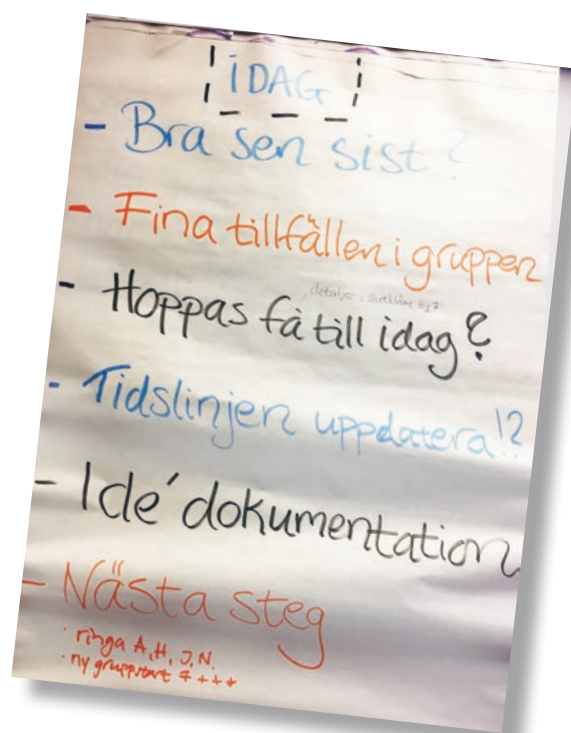 iDAG
- Bra sen sist?
- Fina tillfällen i gruppen
- Hoppas få till idag?
- Tidslinjen uppdatera!?
- Idé dokumentation
- Nästa steg
· ringa A, H, J, N.
· ny gruppstart 7 +++